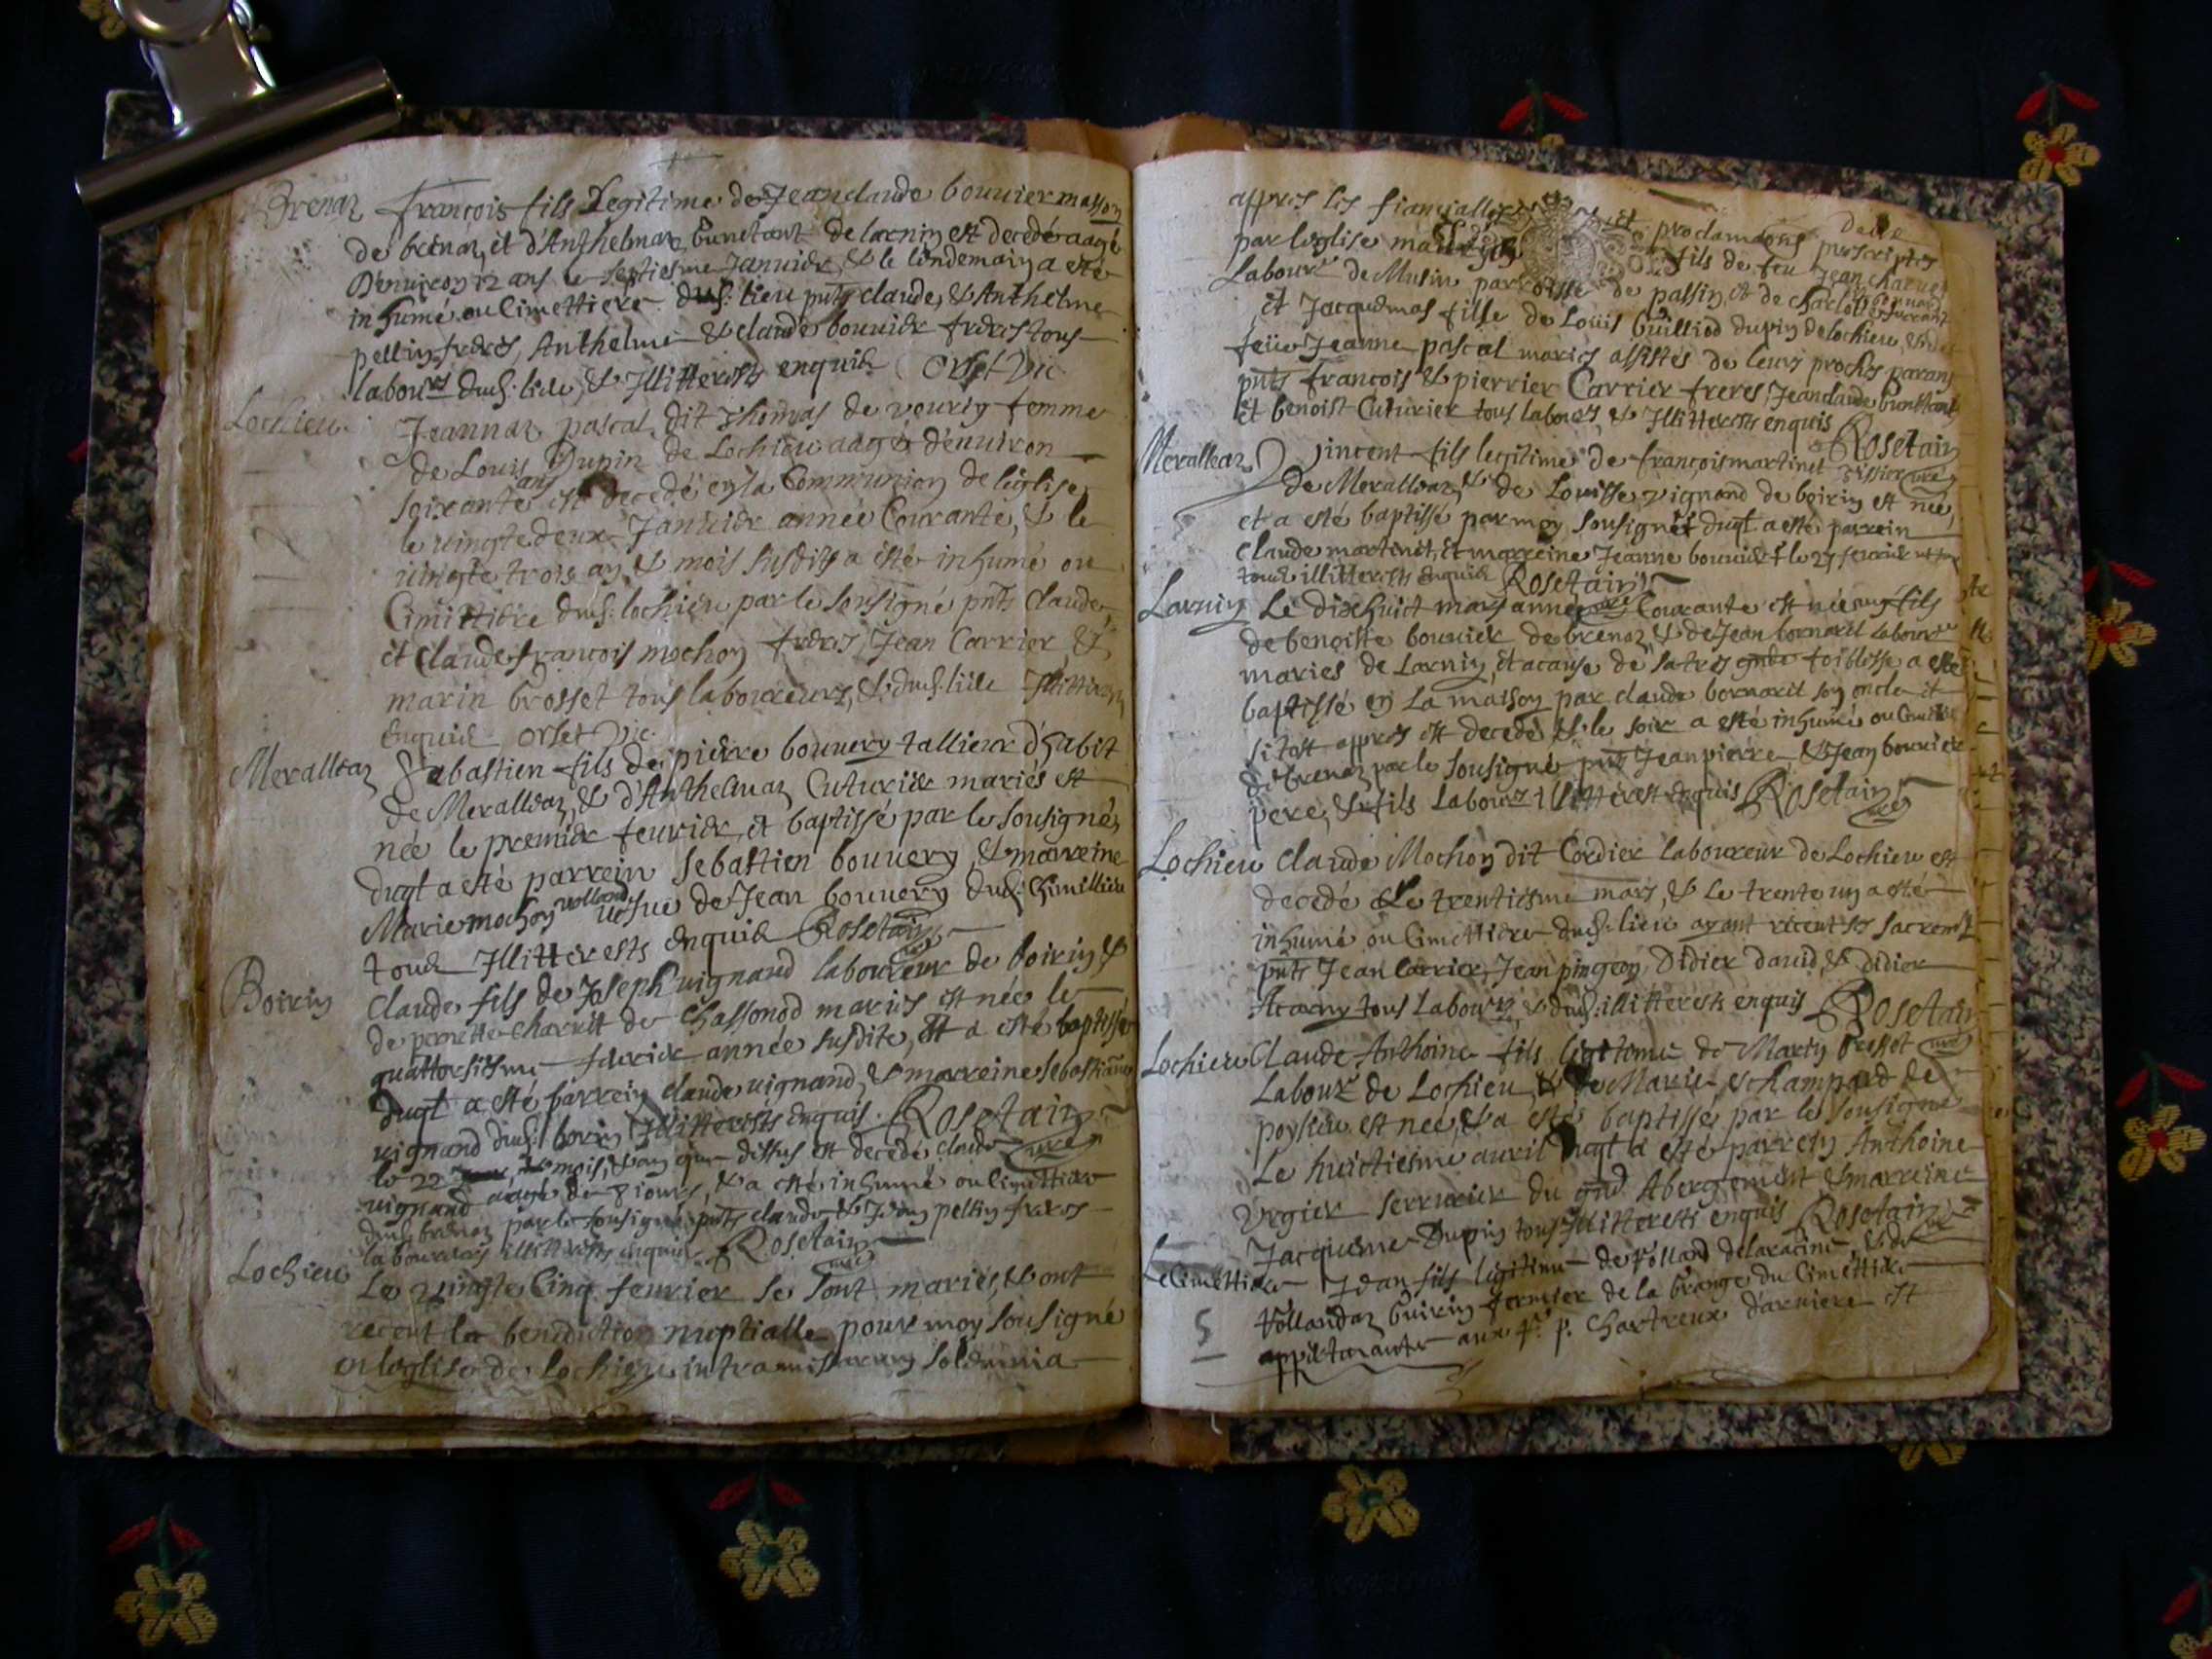 Brenaz françois fils Legitime de Jeanclaude bouuier masson
de brenaz, et d'Anthelmaz bunetant de larniy est decedé aagé
D'enuiroy 12 ans le septiesme Januier, & le lendemaiy a esté
inhumé au Cimettiere dud: lieu pnts claude, & Anthelme
pelliy freres, Anthelme & claude bouuier freres tous
labours dud: lieu, & Illitterests enquis Orset Vic
Lochieu Jeannaz pascal dit Thomas de femme
de Louis Dupin de Lochieu aagée d'enuiron
soixante ans est decedé eyla Communioy de l'église
le uingtedeux Januier année Courante, & le
uingtetrois ay, & mois susdits a esté inhumé au
Cimittiere dud: lochieu par le sousigné pnts Claude
et Claudefrançois mochoy freres, Jean Carrier, &
marin brosset tous laboureurs, & dud: lieu Illitterests
Enquis orset Vic
Merallaz Sebastien fils de pierre bouuery tallieur d'habit
de Merallaz, & d'Anthelmaz Cuturier mariés est
née le premier feurier, et baptissé par le sousigné,
duqt a esté parrein Sebastien bouuery, & marreine
Marie mochoy uolland uefue de Jean bouuery dud:
tous Illitterests Enquis Rosetaiy
Boiriy Claude fils de Joseph uignand laboureur de boiriy &
de pernette charuit de Chassonod mariés est née le
quattorsiesme feurier année susdite, Et a esté baptissé
duqt a esté parreiy claude uignand, & marreine sebastianne
uignand dud: boiriy Illitterests Enquis. Rosetaiy
le 22 mois, & ay que dessus est decedé claude uré
uignand aagé de 8 iours, & a esté inhumé ou Cimettiere
dud: brenaz par le sousigné pnts claude & Jeay pelliy freres
laboureurs illitterests enquis Rosetaiy
Lochieu Le uingte Cinq feurier se sont mariés, & ont
receut la benediction nuptialle pour moy sousigné
en leglise de lochieu intra missarum solemnia
appres les fiancialles et proclamaons prescriptes
par leglise fils de feu Jean
Labour de Musin parroisse de passiy, et de charlotte
et Jacquemas fille de Loüis Guilliod dupiy de lochieu, & de
feüe Jeanne pascal mariés assistés de leurs proches parans
pnts françois & pierrier Carrier freres Jeanclaude bunettant
et benoist Cuturier tous labours, & Illitterests enquis Rosetaiy
Merallaz Vincent fils legitime de françois martinet
de Merallaz, & de Louisse uignand de boiriy est née,
et a esté baptissé par moy sousigné duqt a esté parrein
Claude martinet, et marreine Jeanne bouuier le 27 feurier
tous illitterests Enquis Rosetaiy
Larniy Le dixhuict mars année Courante est née uy fils
de benoiste bouuier de brenaz, & de Jean bornarel labour
mariés de Larniy, et a cause de sa tres gnde foiblesse a esté
baptissé ey La maisoy par claude bornarel soy oncle et
si tost appres est decedé & le soir a esté inhumé ou
de brenaz par le sousigné pnt Jeanpierre & Jean bouuier
pere, & fils Labours Illitterest Enquis Rosetaiy
Lochieu Claude Mochoy dit Cordier laboureur de Lochieu est
decedé Le trentiesme mars, & le trente uy a esté
inhumé ou Cimettiere dud: lieu ayant receut ses sacremts
pnts Jean Carrier, Jean pingeoy, Didier dauid, & Didier
tous Labours, & dud: illitterests enquis Rosetaiy
Lochieu Claude Anthoine fils legitime de Mariy brosset
Labour de Lochieu & de Marie champard de
poysieu est née, & a esté baptissé par le sousigné
Le huictiesme auril duqt a esté parreiy Anthoine
Vrgier serrurier du gnd Abergement & marreine
Jacqueme Dupiy tous Illitterests enquis Rosetaiy
Le Cimettiere Jean fils legitime de Volland delaracine, & de
Vollandaz Guiriy fermier de la Grange du Cimettiere
appartenante aux P. p. Chartreux d'aruiere est
5